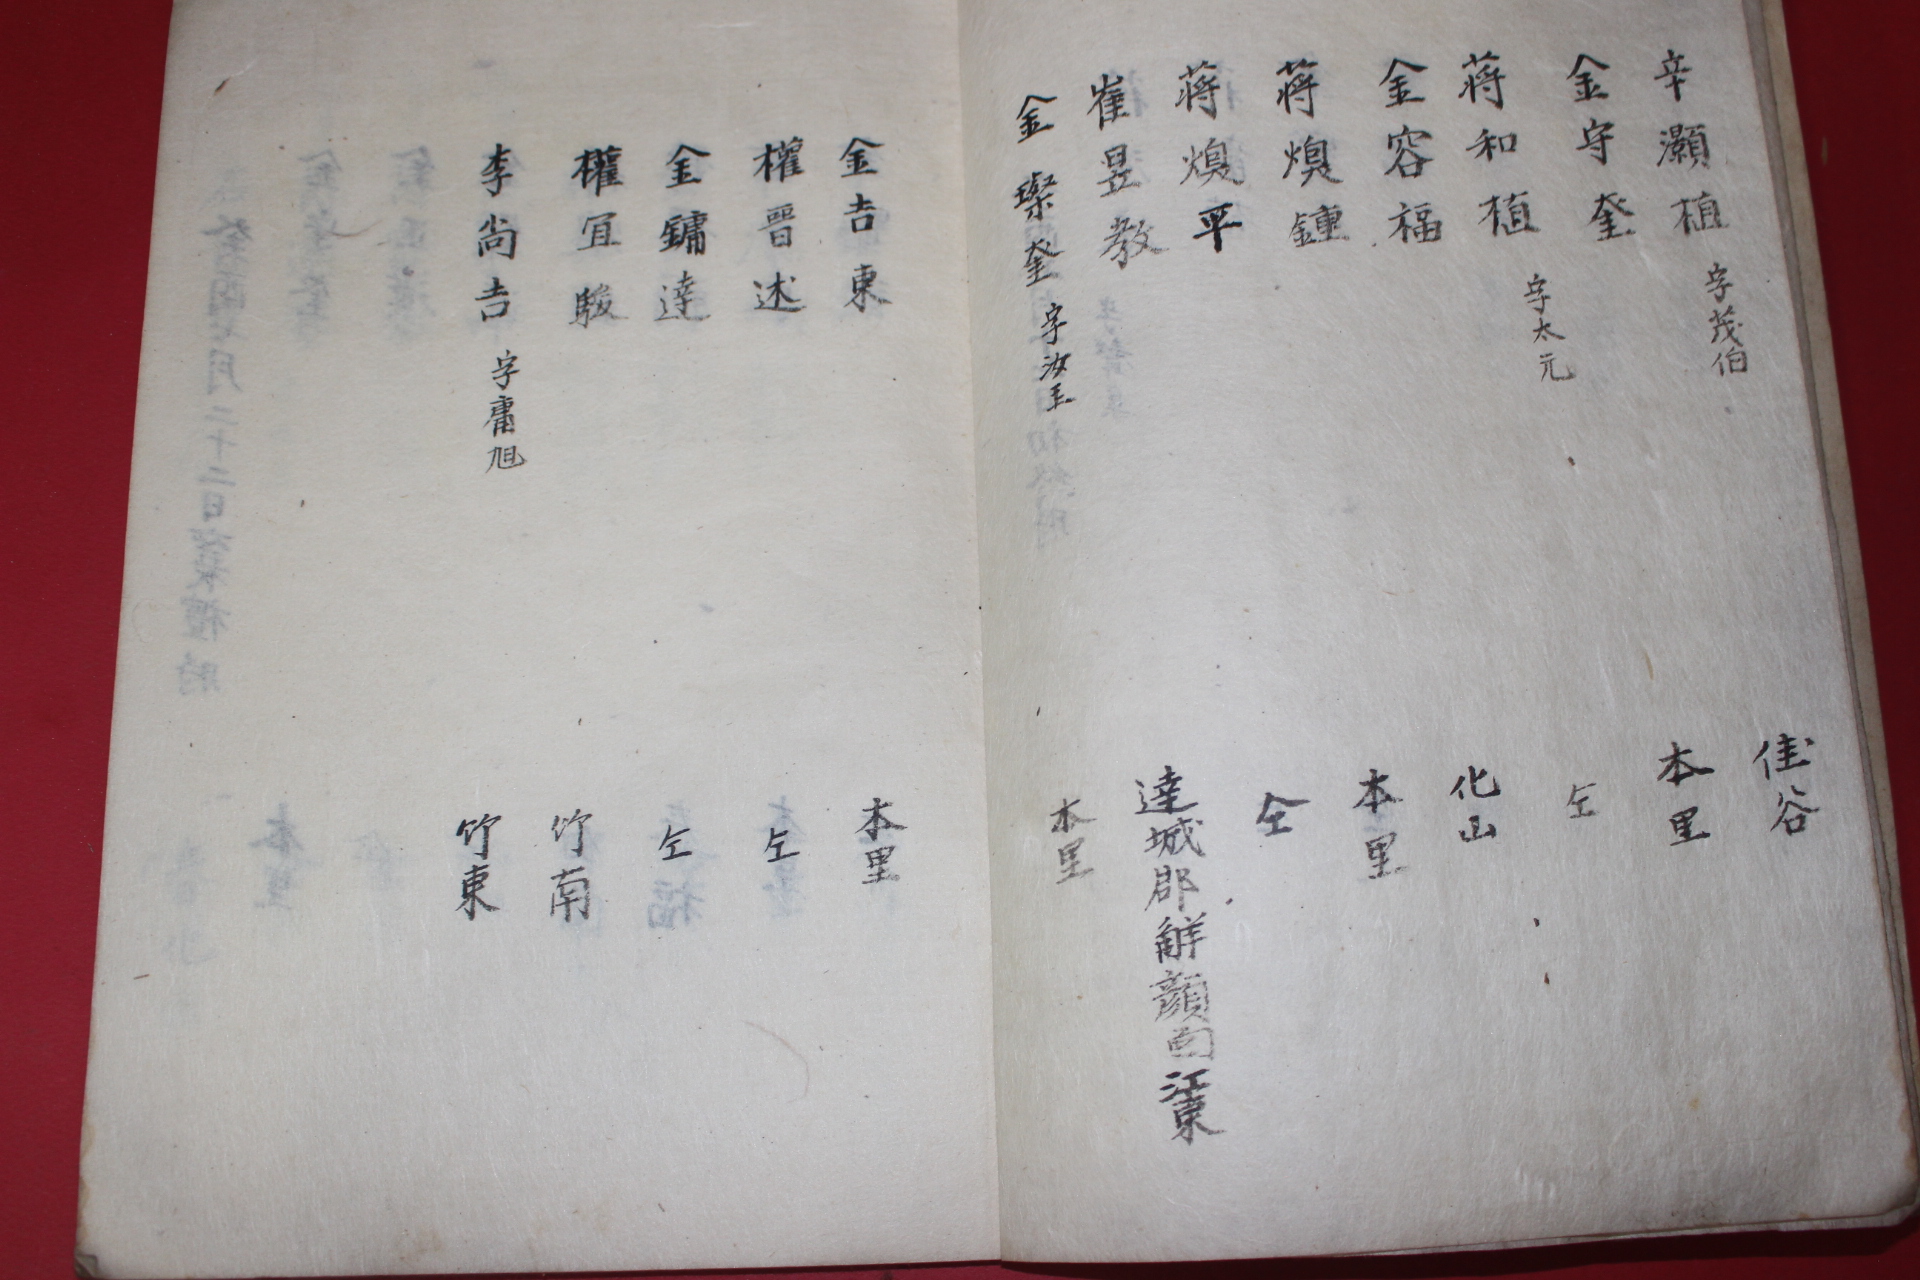 辛灝植 字茂伯 佳谷
金守奎 本里
蔣和植 字太元 仝
金容福 化山
蔣煥鍾 本里
蔣煥平 仝
崔昱教 達城郡解顔面江東
金璨奎 字汝玉 本里
金吉東 本里
權晋述 仝
金鏞達 仝
權宜駿 竹南
李尚吉 字庸旭 竹東